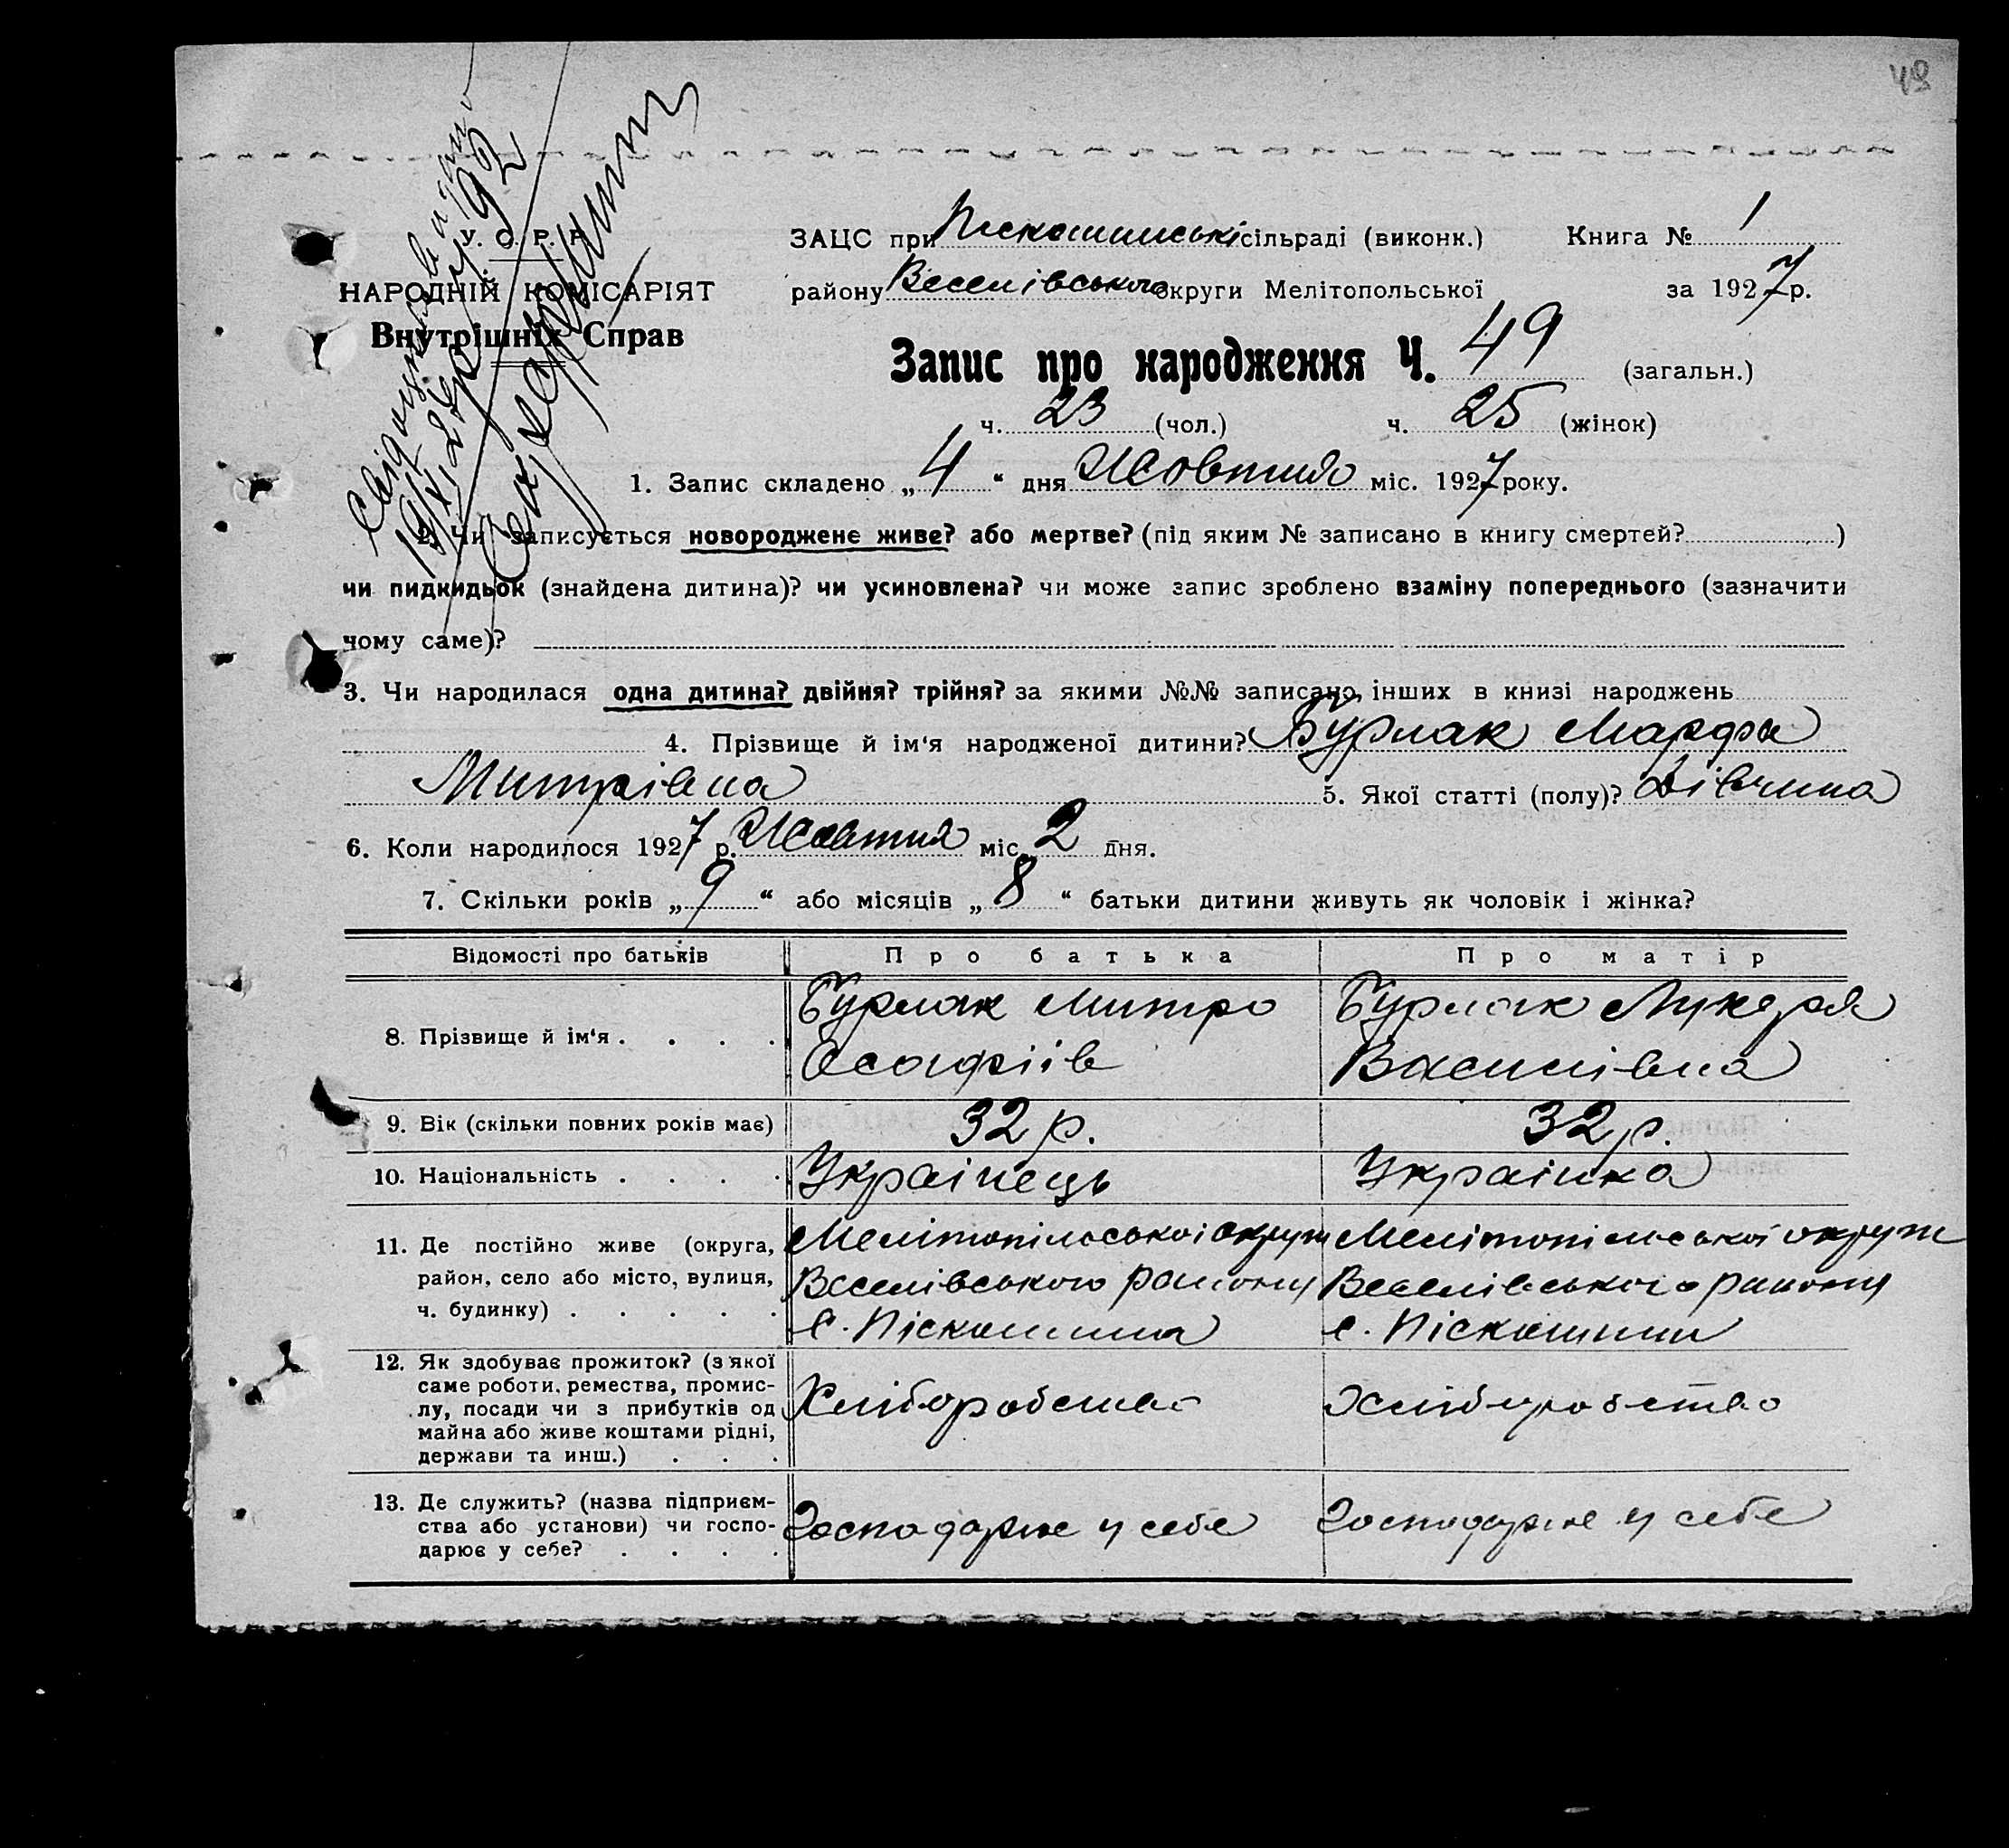 49
Свідоцтво видано
У. С. Р. Р.
НАРОДНІЙ КОМІСАРІЯТ
Внутрішніх Справ
ЗАЦС при Піскошинські сільраді (виконк.) Книга № 1
району Веселівського округи Мелітопольської за 1927 р.
Запис про народження Ч. 49 (загальн.)
ч. 23 (чол.) ч. 25 (жінок)
1. Запис складено „4“ дня Жовтня міс. 1927 року.
2. Чи записується новороджене живе? або мертве? (під яким № записано в книгу смертей? )
чи пидкидьок (знайдена дитина)? чи усиновлена? чи може запис зроблено взаміну попереднього (зазначити
чому саме)?
3. Чи народилася одна дитина? двійня? трійня? за якими №№ записано інших в книзі народжень
4. Прізвище й ім‘я народженої дитини? Бурлак Марфа
Митрівна 5. Якої статті (полу)? Дівчина
6. Коли народилося 1927 р. Жовтня міс. 2 дня.
7. Скільки років „9“ або місяців „8“ батьки дитини живуть як чоловік і жінка?
Відомості про батьків Про батька Про матір
8. Прізвище й ім‘я . . . . Бурлак Митро Бурлак Лукеря
Осафіів Василівна
9. Вік (скільки повних років має) 32 р. 32 р.
10. Національність . . . . Украінець Украінка
11. Де постійно живе (округа, Мелітопільськоі округи Мелітопільськоі округи
район, село або місто, вулиця, Веселівського району Веселівського району
ч. будинку) . . . . . с. Піскошина с. Піскошини
12. Як здобуває прожиток? (з якої
саме роботи, ремества, промис-
лу, посади чи з прибутків од Хліборобство Хліборобство
майна або живе коштами рідні,
держави та инш.) . . .
13. Де служить? (назва підприєм-
ства або установи) чи госпо- Господарює у себе Господарює у себе
дарює у себе? . . . .